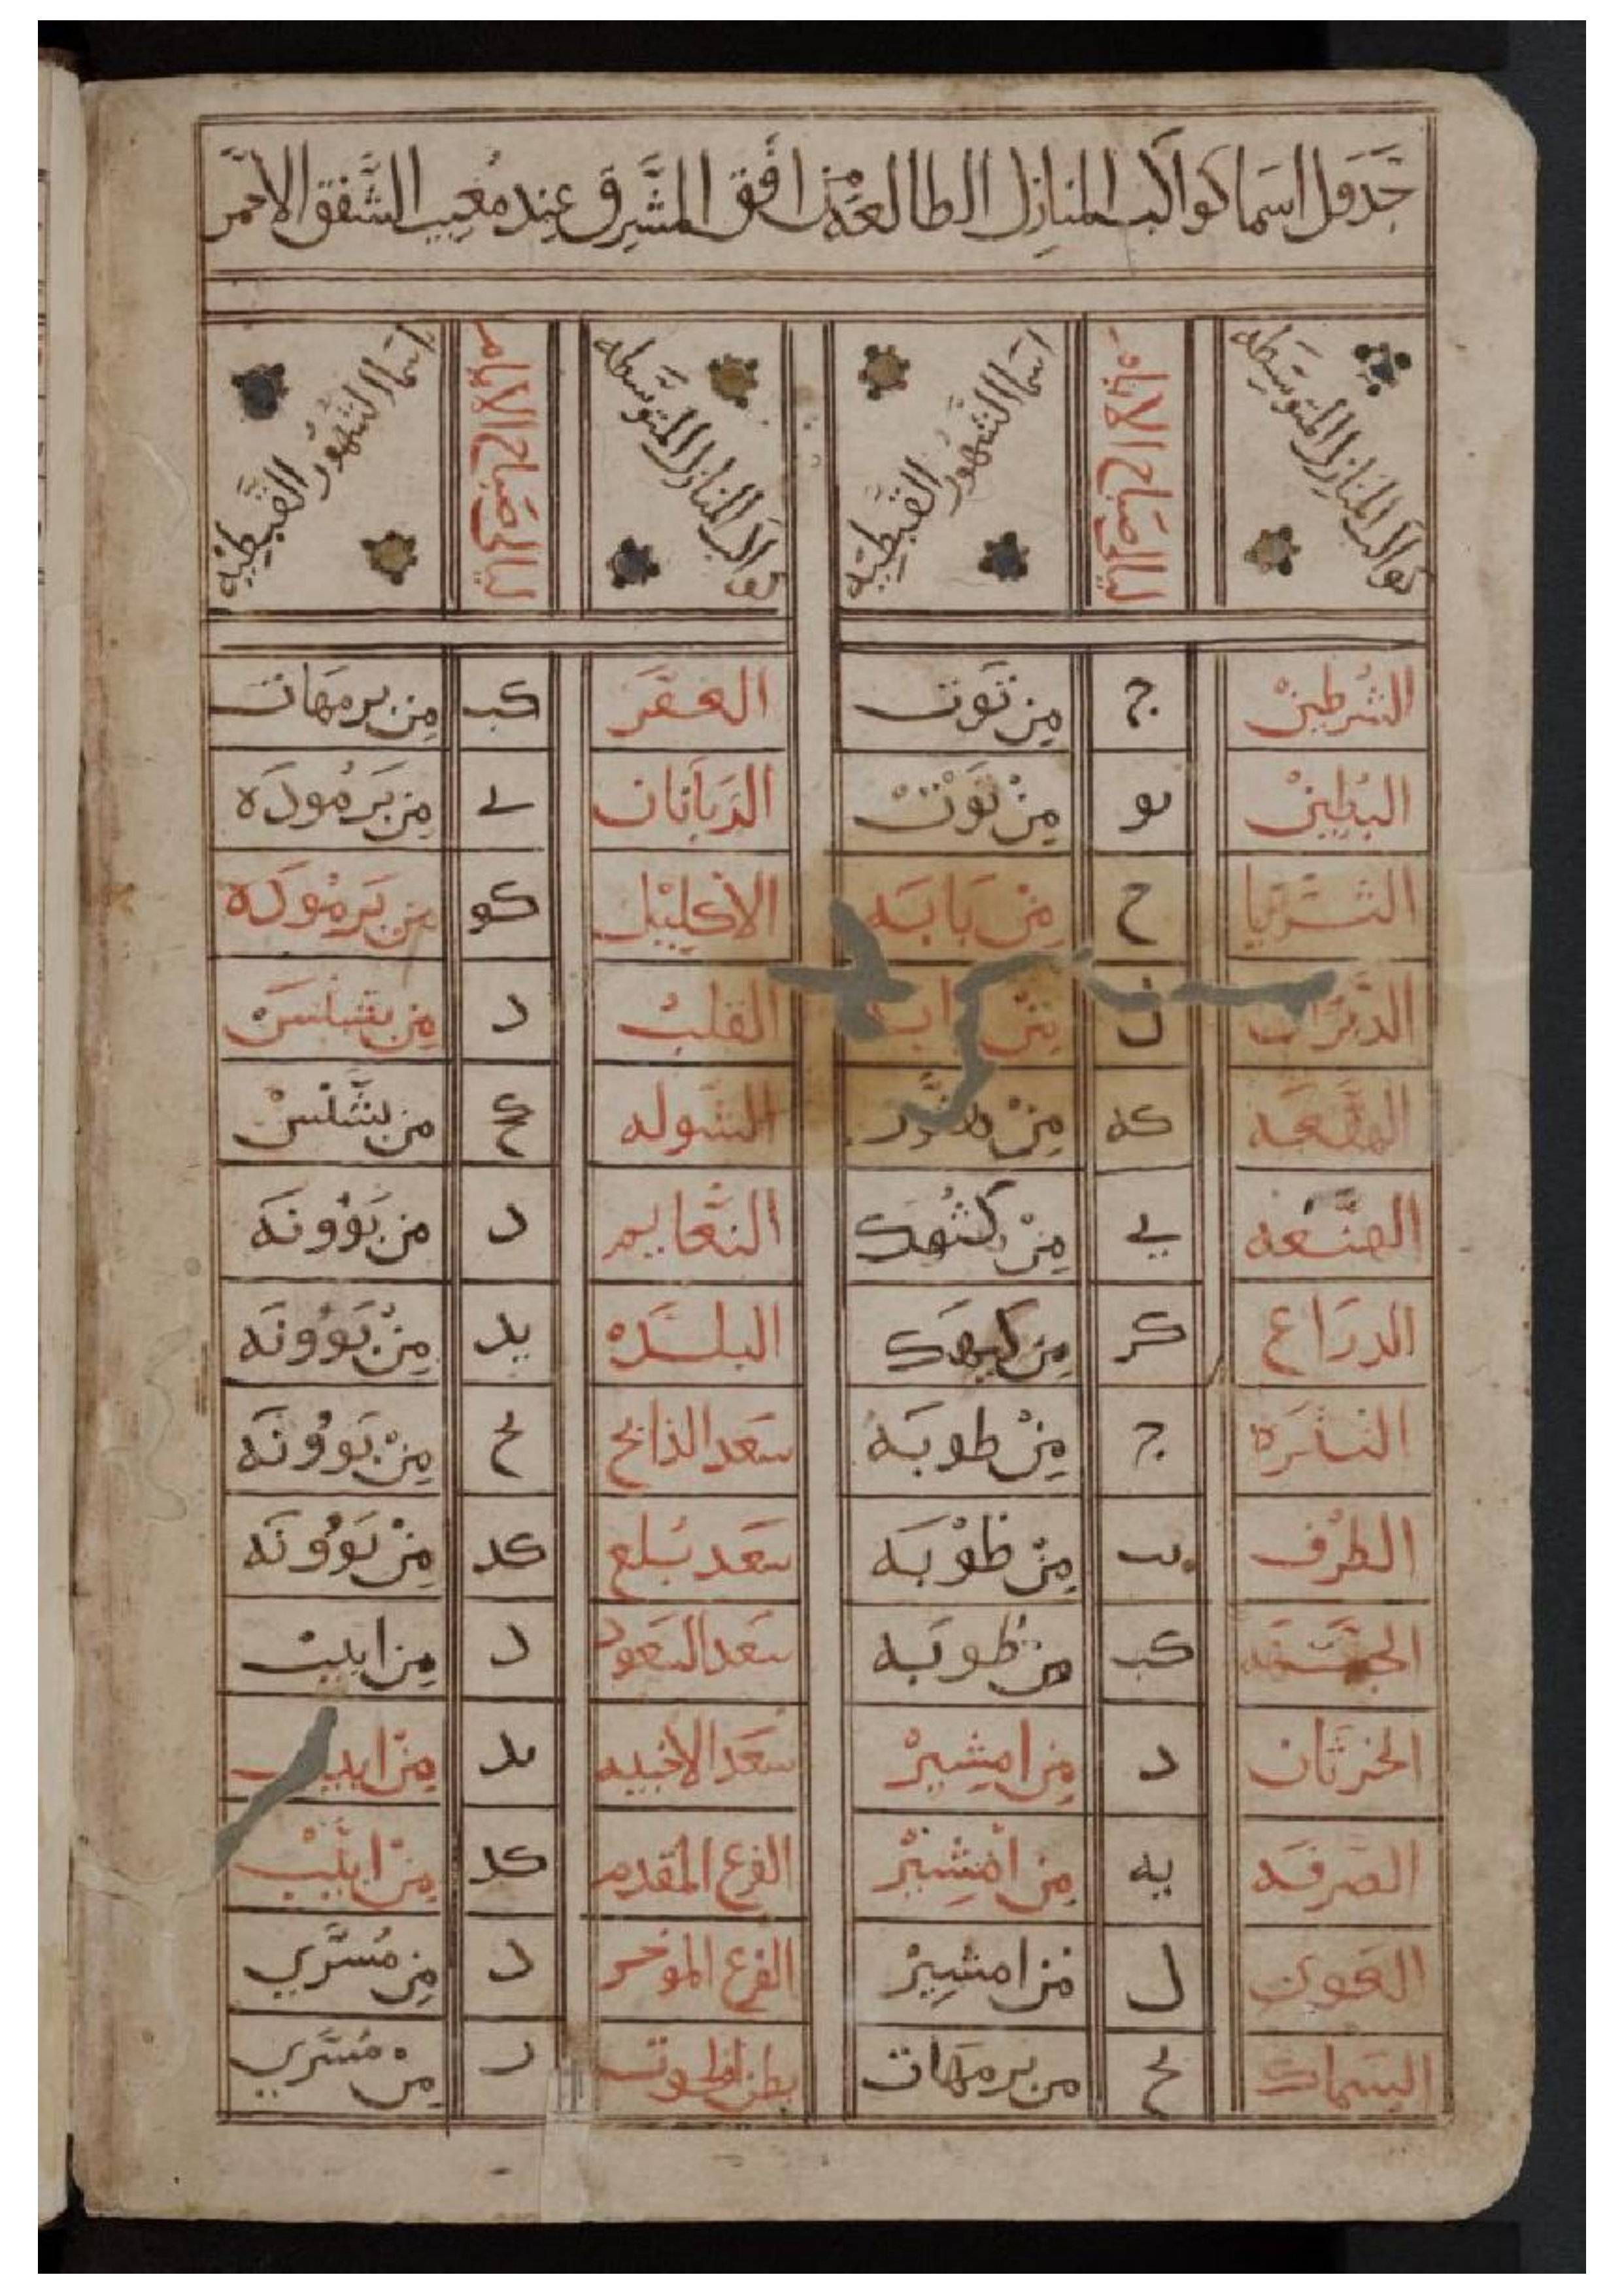 جدول اسما كواكب المنازل الطالعة من افق المشرق عند مغيب الشفق الاحمر
كواكب المنازل المتوسطه ليالي صباح الايام اسما الشهور القبطيه كواكب المنازل المتوسطه ليالي صباح الايام اسما الشهور القبطيه
الشرطين ج من توت الغفر كب من برمهات
البطين يو من توت الزبانان ي من برموده
الثريا ح من بابه الاكليل كو من برموده
الدبران ل من القلب د من بشنس
الهقعه كه من الشوله من بشنس
الهنعه ي من كيهك النعايم د من بوونه
الدراع كز من كيهك البلده يد من بوونه
النثره ج من طوبه سعد الذابح ح من بوونه
الطرف يب من طوبه سعد بلع كد من بوونه
الجبهه كب من طوبه سعد السعود د من ابيب
الخرثان د من امشير سعد الاخبيه يد من ابيب
الصرفه يه من امشير الفرع المقدم كد من ابيب
العوى ل من امشير الفرع الموخر د من مسري
السماك ح من برمهات بطن الحوت د من مسري